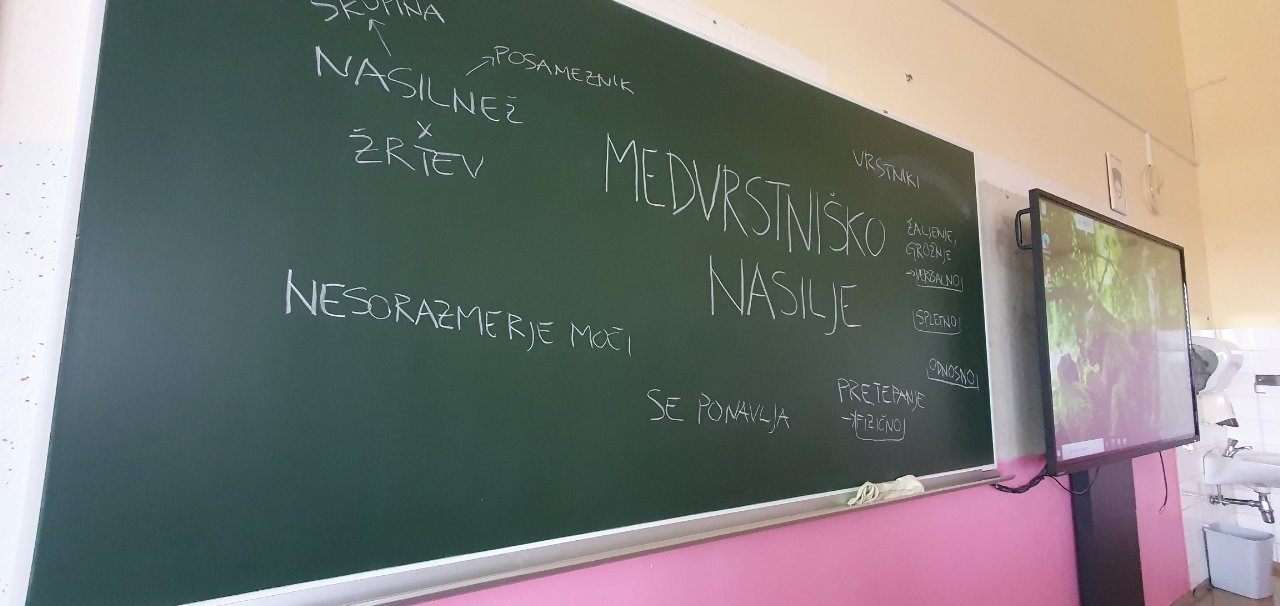 SKUPINA
NASILNEŽ
POSAMEZNIK
X
ŽRTEV
MEDVRSTNIŠKO
NASILJE
VRSTNIKI
ŽALJENJE,
GROŽNJE
→VERBALNO
SPLETNO
ODNOSNO
NESORAZMERJE MOČI
SE PONAVLJA
PRETEPANJE
→FIZIČNO